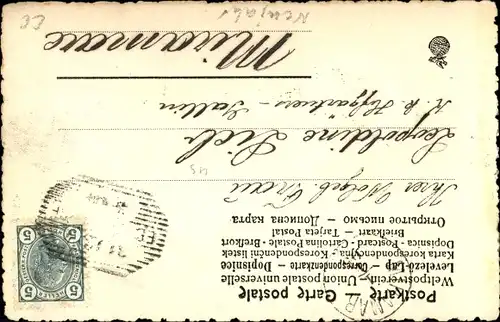 Postkarte — Carte postale
Weltpostverein — Union postale universelle
Levelező-Lap — Correspondenzkarte — Dopisnice
Karta korespondencyjna · Korespondenčni listek
Dopisnica · Postcard · Cartolina Postale · Brefkort
Briefkaart — Tarjeta Postal
Открытое письмо — Дописна карта
Ihrer Wolgeb. Frau
Leopoldine
K. k. Hofgärtners-Gattin
Miramare
Neujahr
5 5
5 5